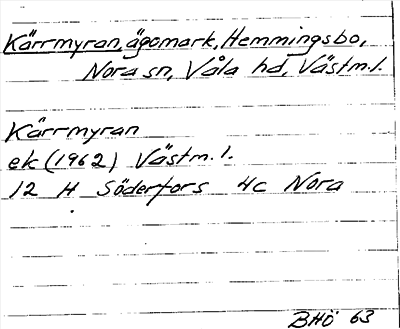 Kärrmyran, ägomark, Hemmingsbo,
Nora sn, Våla hd, Västm.l.
Kärrmyran
ek (1962) Västm.l.
12 H Söderfors 4c Nora
BHÖ 63